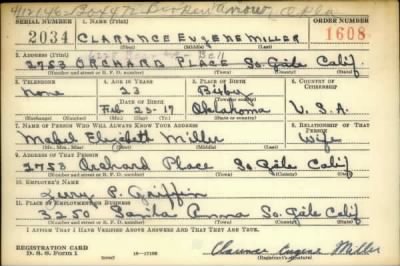 SERIAL NUMBER
1. NAME (Print)
ORDER NUMBER
2034
CLARANCE EUGENE MILLER
1608
(First) (Middle) (Last)
2. ADDRESS (Print)
Bell
2753 ORCHARD PLACE So. Gate Calif.
(Number and street or R. F. D. number) (Town) (County) (State)
3. TELEPHONE
4. AGE IN YEARS
5. PLACE OF BIRTH
6. COUNTRY OF CITIZENSHIP
None
23
Bixby
DATE OF BIRTH
Feb 23-17
Oklahoma
U.S.A.
(Exchange) (Number)
(Mo.) (Day) (Yr.)
(State or country)
7. NAME OF PERSON WHO WILL ALWAYS KNOW YOUR ADDRESS
8. RELATIONSHIP OF THAT PERSON
Elizabeth Miller
Wife
(Mr., Mrs., Miss) (First) (Middle) (Last)
9. ADDRESS OF THAT PERSON
2753 Orchard Place So Gate Calif
(Number and street or R. F. D. number) (Town) (County) (State)
10. EMPLOYER'S NAME
P. Griffin
11. PLACE OF EMPLOYMENT OR BUSINESS
3250 Santa Anna So. Gate Calif
(Number and street or R. F. D. number) (Town) (County) (State)
I AFFIRM THAT I HAVE VERIFIED ABOVE ANSWERS AND THAT THEY ARE TRUE.
REGISTRATION CARD
D. S. S. Form 1
Clarence Eugene Miller
(Registrant's signature)